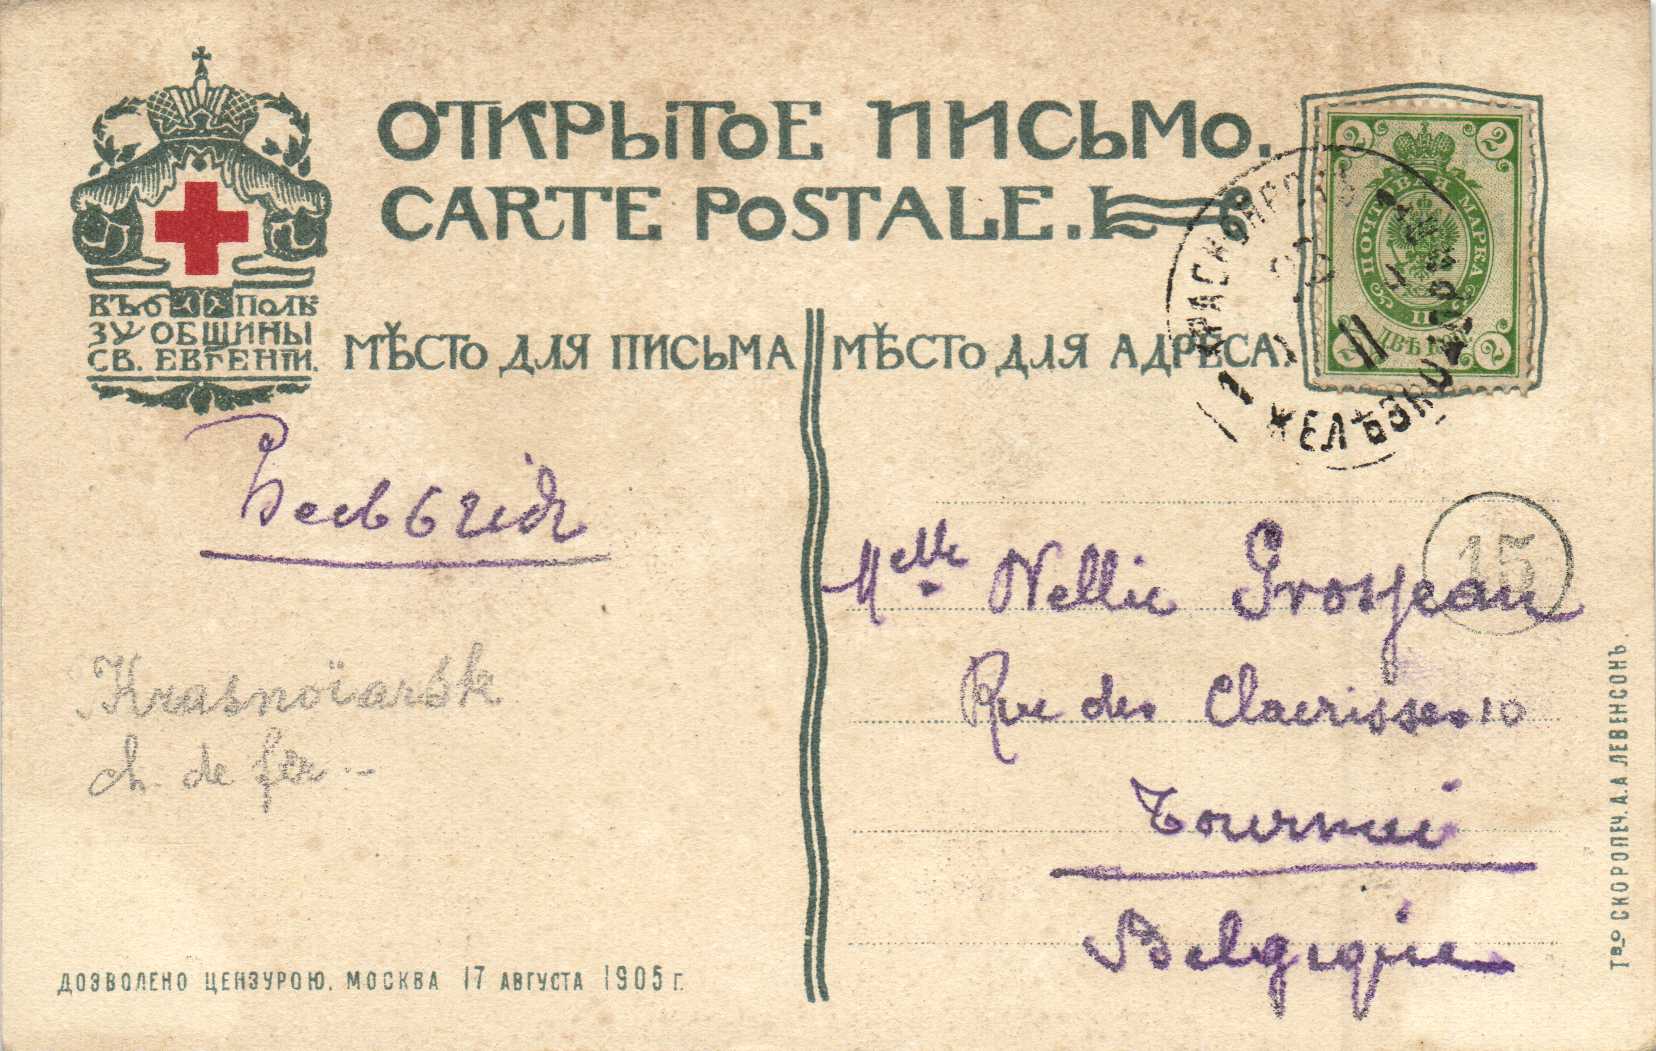 ОТКРЫТОЕ ПИСЬМО.
CARTE POSTALE.
ВЪ ПОЛЬ
ЗУ ОБЩИНЫ
СВ. ЕВГЕНІИ.
МѢСТО ДЛЯ ПИСЬМА
МѢСТО ДЛЯ АДРЕСА.
2 2
ПОЧТОВАЯ МАРКА
ДВѢ КОП.
2 2
КРАСНОЯРСКЪ
ЖЕЛѢЗНОДОРОЖ
1
15
Krasnoïarsk
ch. de fer
Melle Nellie Grosjean
Rue des Claerisses 10
Tournai
Belgique
ДОЗВОЛЕНО ЦЕНЗУРОЮ. МОСКВА 17 АВГУСТА 1905 Г.
Тво СКОРОПЕЧ. А.А ЛЕВЕНСОНЪ.